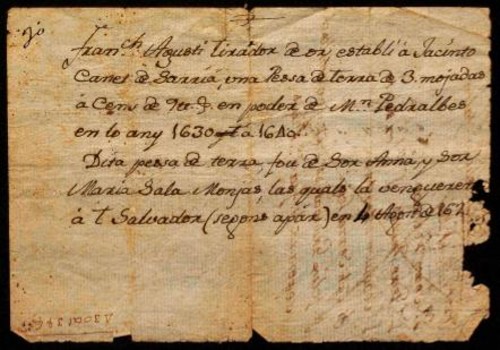 Fran.ch Agusti Tirador de or, establí á Jacinto
Canet de Sarriá, una Pessa de Terra de 3. mojadas
á Cens de en poder de M.n Pedralbes
en lo any 1630 á 1640.
Dita pessa de terra, fou de Sor Anna, y Sor
Maria Sala Monjas, las quals la vengueren
á Salvador (segons apár) en 4 Agost de 162